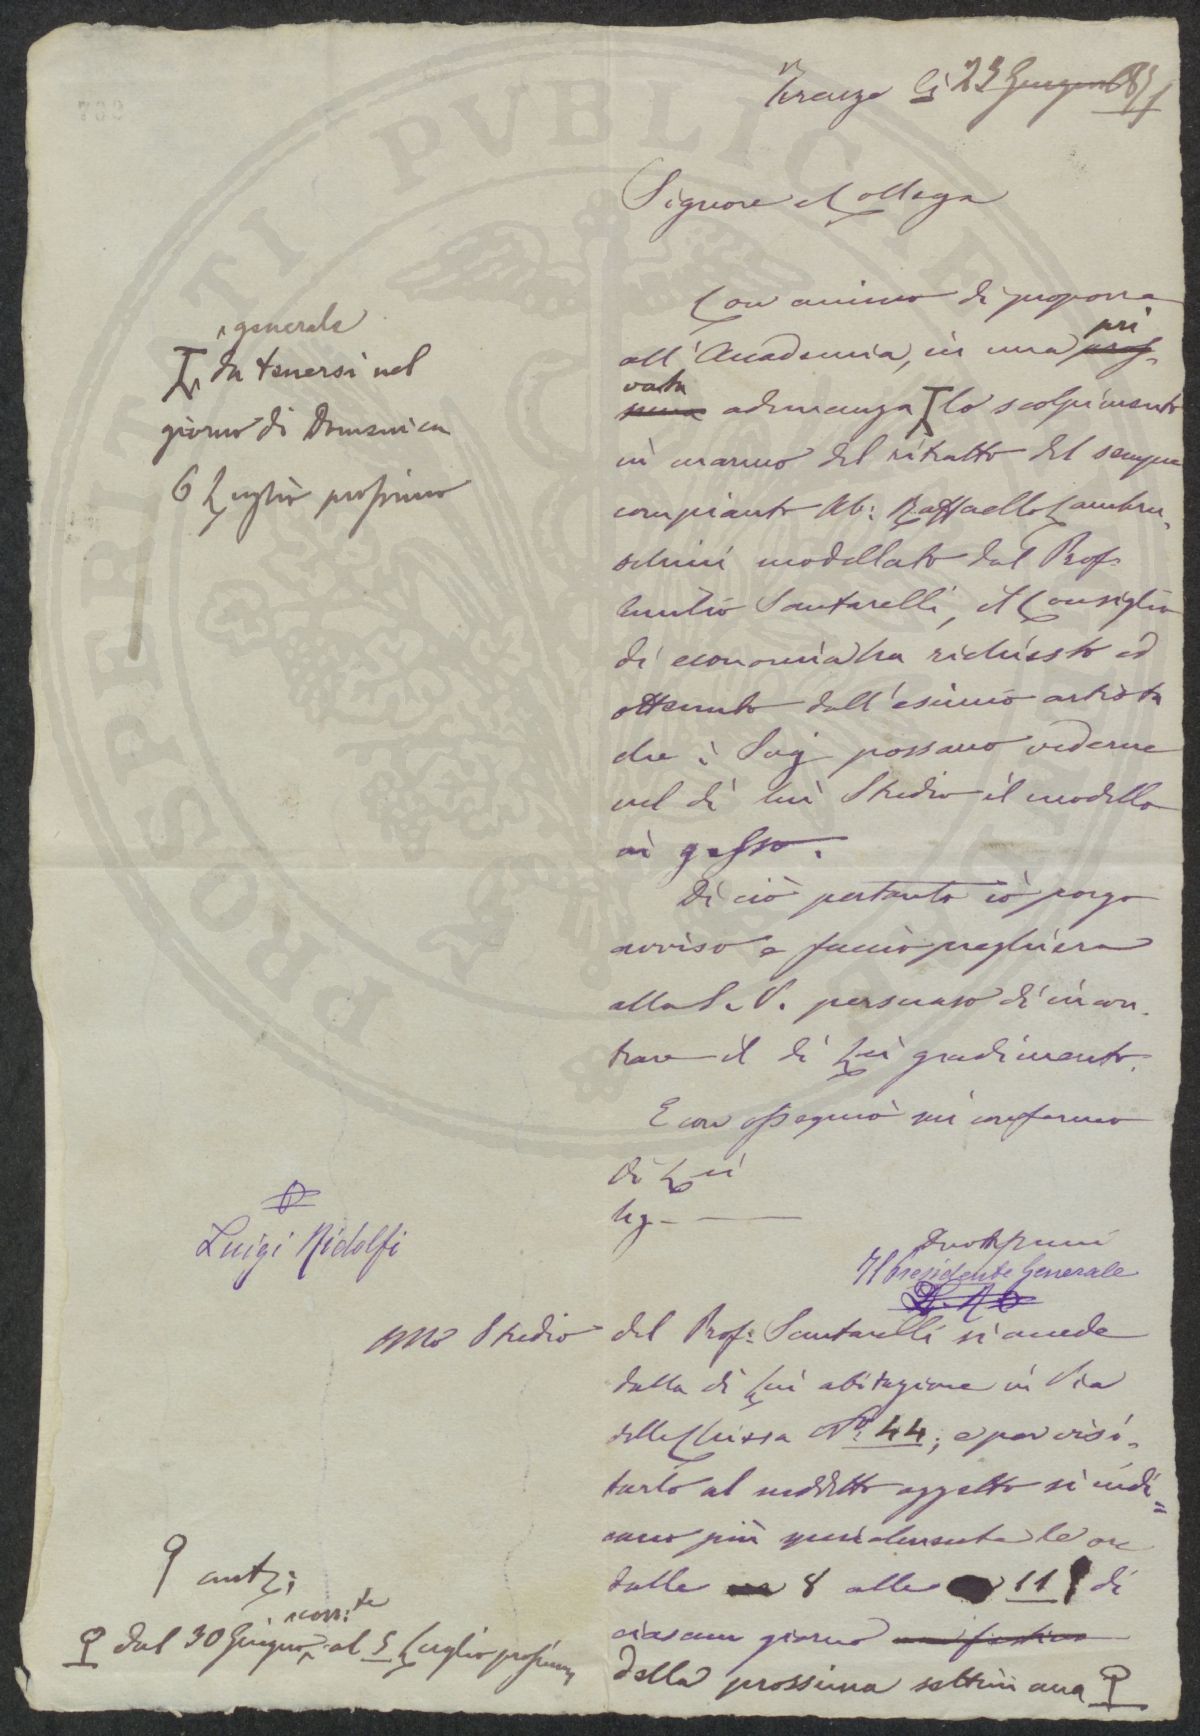 Firenze li 23 Giugno
Signore e Collega
Con animo di proporre
all'Accademia, in una pri
vata adunanza lo scolpimento
in marmo del ritratto del sempre
compianto Ab: Raffaello Lambru,
schini modellato dal Prof.
Emilio Santarelli, il Consiglio
di economia ha richiesto ed
ottenuto dall'esimio artista
che i Soci possano vederne
nel di lui Studio il modello
in gesso.
Di ciò pertanto io porgo
avviso e faccio preghiera
alla S. V. persuaso di incon,
trare il di Lei gradimento.
E con ossequio mi confermo
di Lei
Il Presidente Generale
generale
da tenersi nel
giorno di Domenica
6 Luglio prossimo
Luigi Ridolfi
Lo Studio del Prof: Santarelli si accede
dalla di Lui abitazione in Via
della Chiesa N° 44; e per visi,
tarlo al suddetto oggetto si indi=
cano più specialmente le ore
dalle 8 alle 11 di
ciascun giorno
della prossima settimana
anzi
dal 30 Giugno corr.te al 5 Luglio prossimo